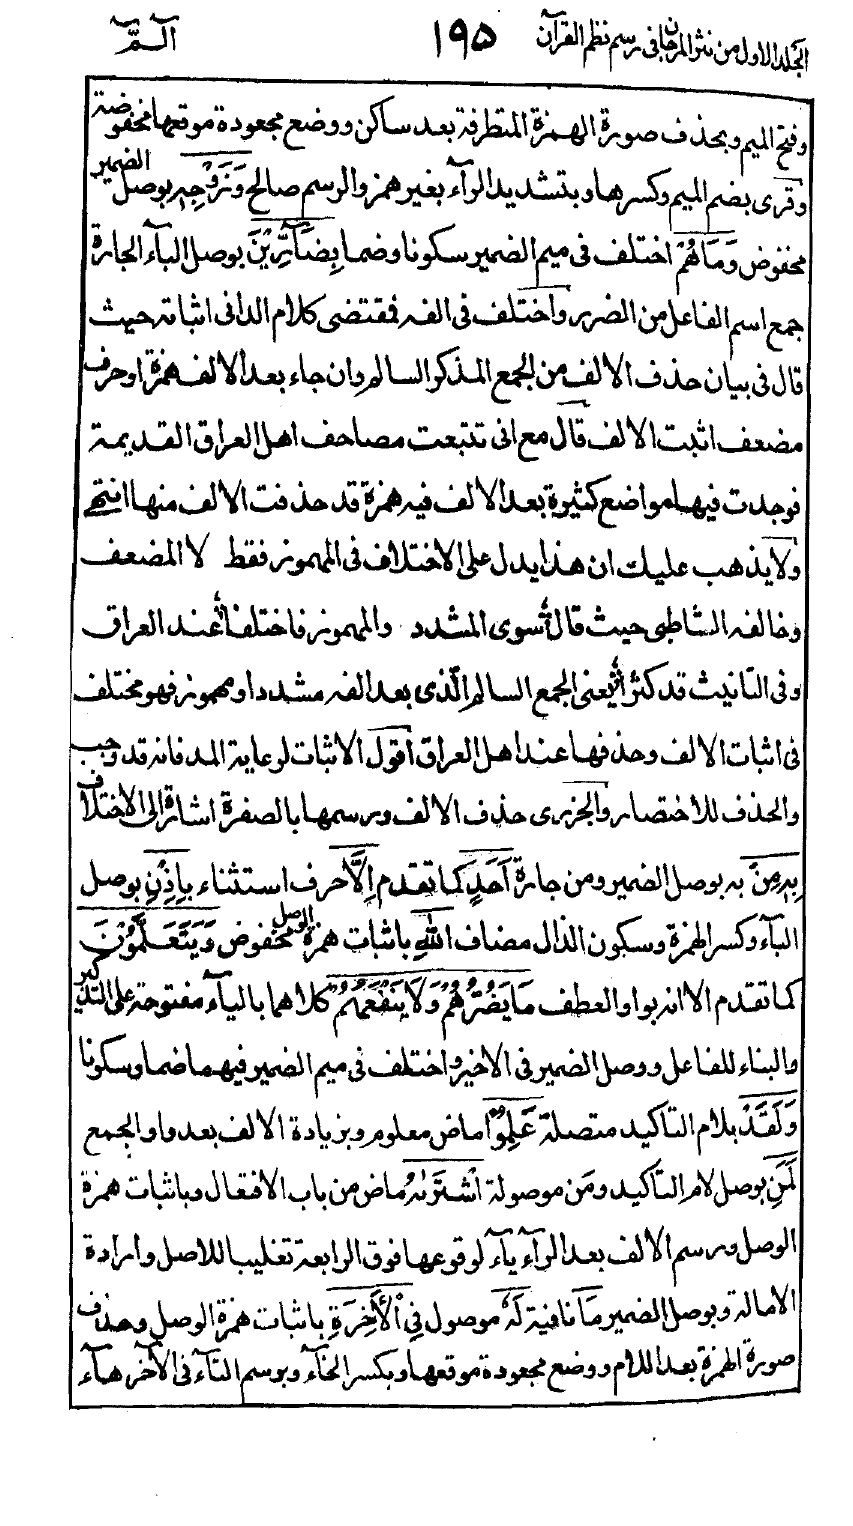 المجلد الاول من نثر المرجان فى رسم نظم القرآن ١٩٥ الٓمّٓ
وفتح الميم وبحذف صورة الهمزة المتطرفة بعد ساكن ووضع مجعودة موقعها مخفوضة
وقرى بضم الميم وكسرها وبتشديد الرآء بغير همز والرسم صالح وَزَوْجِهٖ بوصل الضمير
مخفوض وَمَا هُمْ اختلف فى ميم الضمير سكونا وضما بِضَآرِّيْنَ بوصل البآء الجارة
جمع اسم الفاعل من الضرر واختلف فى الفه فمقتضى كلام الدانى اثباته حيث
قال فى بيان حذف الالف من الجمع المذكر السالم وان جاء بعد الالف همزة او حرف
مضعف اثبت الالف قال مع انى تتبعت مصاحف اهل العراق القديمة
فوجدت فيها مواضع كثيرة بعد الالف فيه همزة قد حذفت الالف منها انتهى
ولا يذهب عليك ان هذا يدل على الاختلاف فى المهموز فقط لا المضعف
وخالفه الشاطبى حيث قال سوى المشدد والمهموز فاختلفا عند العراق
وفى التانيث قد كثرا يعنى الجمع السالم الّذى بعد الفه مشدد او مهموز فهو مختلف
فى اثبات الالف وحذفها عند اهل العراق اقول الاثبات لرعاية المد فانه قد وجب
والحذف للاختصار والجزرى حذف الالف ورسمها بالصفرة اشارة الى الاختلاف
بِهٖ مِنْ به بوصل الضمير ومن جارة اَحَدٍ كما تقدم اِلَّا حرف استثناء بِاِذْنِ بوصل
البآء وكسر الهمزة وسكون الذال مضاف اللّٰهِ باثبات همزة الوصل مخفوض وَيَتَعَلَّمُوْنَ
كما تقدم الا انه بواو العطف مَا يَضُرُّهُمْ وَلَا يَنْفَعُهُمْ كلاهما باليآء مفتوحة على التذكير
والبناء للفاعل ووصل الضمير فى الاخير واختلف فى ميم الضمير فيهما ضما وسكونا
وَلَقَدْ بلام التاكيد متصلة عَلِمُوْا ماض معلوم وبزيادة الالف بعد واو الجمع
لَمَنِ بوصل لام التاكيد ومن موصولة اشْتَرٰىهُ ماض من باب الافتعال وباثبات همزة
الوصل ورسم الالف بعد الرآء يآء لوقوعها فوق الرابعة تغليبا للاصل وارادة
الامالة وبوصل الضمير مَا نافية لَهٗ موصول فِى الْاٰخِرَةِ باثبات همزة الوصل وحذف
صورة الهمزة بعد اللام ووضع مجعودة موقعها وبكسر الخآء وبوسم التآء فى الآخر هآء